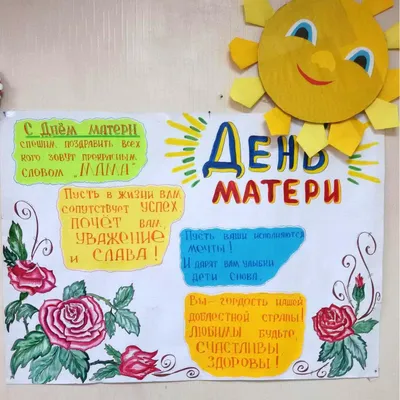 С Днём матери
спешим поздравить всех
кого зовут прекрасным
словом „МАМА"
ДЕНЬ
МАТЕРИ
Пусть в жизни вам
сопутствует успех
почёт вам,
уважение
и СЛАВА!
Пусть ваши исполняются
мечты!
И дарят вам улыбки
дети снова.
Вы-гордость нашей
доблестной страны!
Любимы будьте,
счастливы
здоровы!